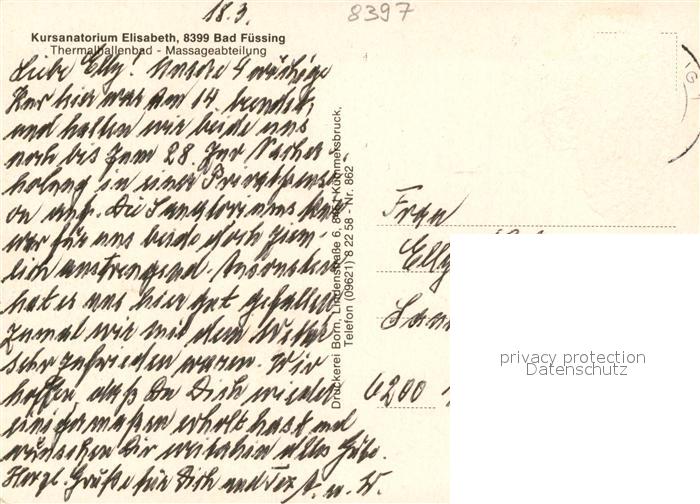 18.3.
8397
Kursanatorium Elisabeth, 8399 Bad Füssing
Thermalhallenbad - Massageabteilung
Liebe Elly! Unsere 4 wöchige
Kur hier war am 14. beendet,
und halten wir beide uns
noch bis zum 28. zur Nacher-
holung in einer Privatpensi-
on auf. Die Sanatoriums Kur
war für uns beide doch ziem-
lich anstrengend. Ansonsten
hat es uns hier gut gefallen
zumal wir mit dem Wetter
sehr zufrieden waren. Wir
hoffen, daß Du Dich wieder
einigermaßen erholt hast und
wünschen Dir weiterhin alles Gute.
Herzl. Grüße für Dich und A. u. W.
Druckerei Born, Lindenstraße 6, Kümmersbruck,
Telefon (09621) 8 22 58 - Nr. 862
Frau
Elly
6200
privacy protection
Datenschutz